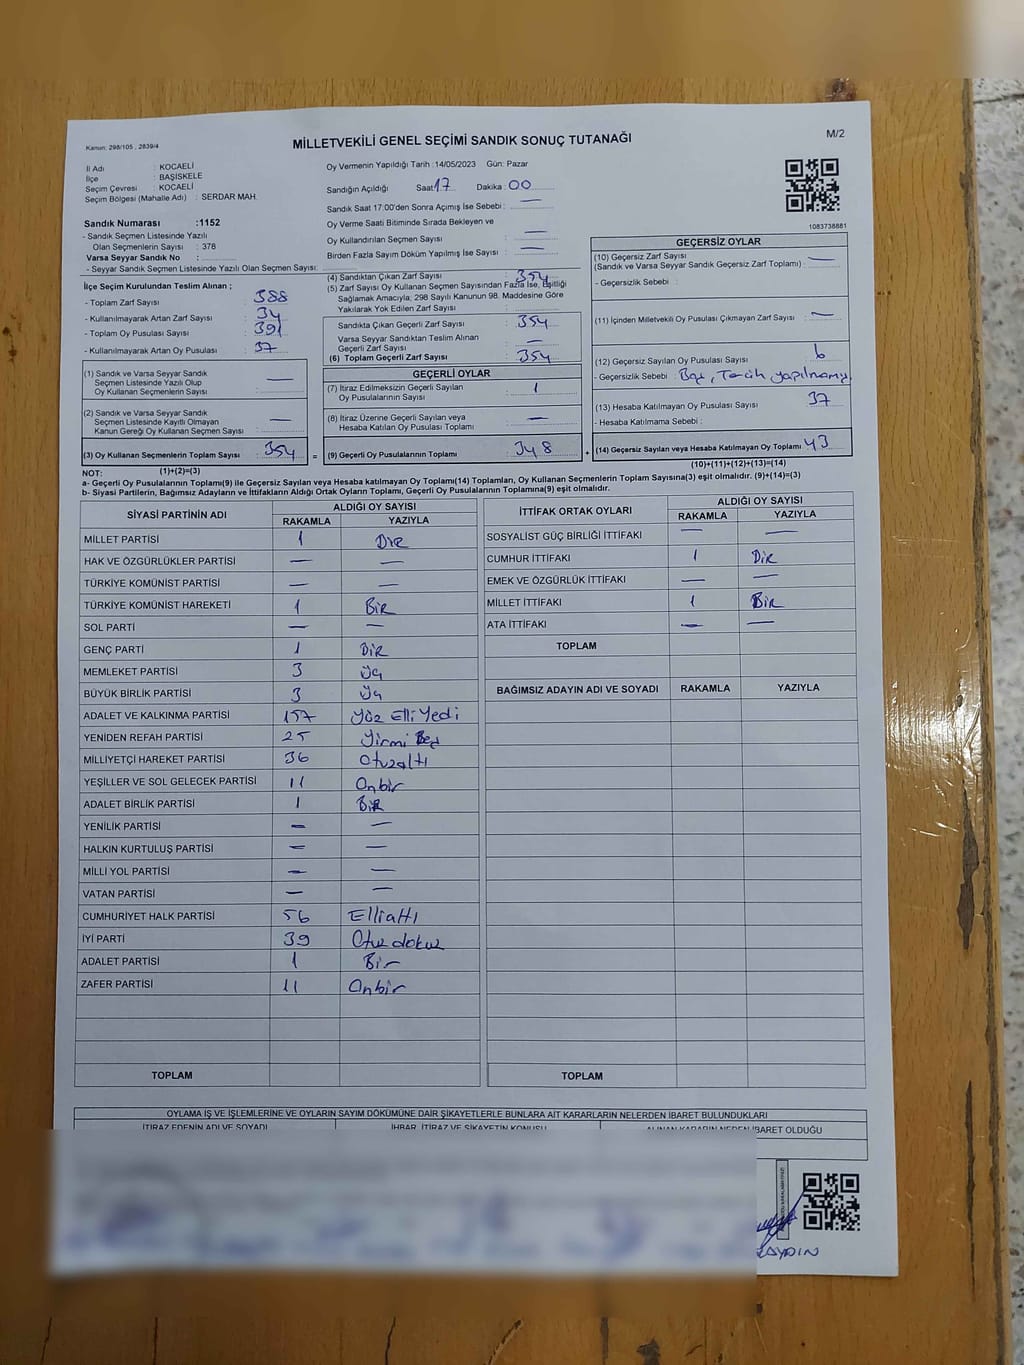 Kanun: 298/105 , 2839/4
MİLLETVEKİLİ GENEL SEÇİMİ SANDIK SONUÇ TUTANAĞI
M/2
İl Adı : KOCAELİ
İlçe : BAŞİSKELE
Seçim Çevresi : KOCAELİ
Seçim Bölgesi (Mahalle Adı) : SERDAR MAH.
Sandık Numarası :1152
- Sandık Seçmen Listesinde Yazılı
Olan Seçmenlerin Sayısı : 378
Varsa Seyyar Sandık No :
- Seyyar Sandık Seçmen Listesinde Yazılı Olan Seçmen Sayısı:
Oy Vermenin Yapıldığı Tarih :14/05/2023 Gün: Pazar
Sandığın Açıldığı Saat 17 Dakika : 00
Sandık Saat 17:00'den Sonra Açımış İse Sebebi : —
Oy Verme Saati Bitiminde Sırada Bekleyen ve
Oy Kullandırılan Seçmen Sayısı —
Birden Fazla Sayım Döküm Yapılmış İse Sayısı —
1083738881
İlçe Seçim Kurulundan Teslim Alınan ;
- Toplam Zarf Sayısı : 388
- Kullanılmayarak Artan Zarf Sayısı : 34
- Toplam Oy Pusulası Sayısı : 391
- Kullanılmayarak Artan Oy Pusulası : 37
(1) Sandık ve Varsa Seyyar Sandık
Seçmen Listesinde Yazılı Olup
Oy Kullanan Seçmenlerin Sayısı : —
(2) Sandık ve Varsa Seyyar Sandık
Seçmen Listesinde Kayıtlı Olmayan
Kanun Gereği Oy Kullanan Seçmen Sayısı : —
(3) Oy Kullanan Seçmenlerin Toplam Sayısı : 354
(1)+(2)=(3)
(4) Sandıktan Çıkan Zarf Sayısı : 354
(5) Zarf Sayısı Oy Kullanan Seçmen Sayısından Fazla İse, Eşitliği
Sağlamak Amacıyla; 298 Sayılı Kanunun 98. Maddesine Göre
Yakılarak Yok Edilen Zarf Sayısı :
Sandıkta Çıkan Geçerli Zarf Sayısı : 354
Varsa Seyyar Sandıktan Teslim Alınan
Geçerli Zarf Sayısı : —
(6) Toplam Geçerli Zarf Sayısı : 354
GEÇERLİ OYLAR
(7) İtiraz Edilmeksizin Geçerli Sayılan
Oy Pusulalarının Sayısı : 1
(8) İtiraz Üzerine Geçerli Sayılan veya
Hesaba Katılan Oy Pusulası Toplamı : —
= (9) Geçerli Oy Pusulalarının Toplamı : 348
GEÇERSİZ OYLAR
(10) Geçersiz Zarf Sayısı
(Sandık ve Varsa Seyyar Sandık Geçersiz Zarf Toplamı) : —
- Geçersizlik Sebebi :
(11) İçinden Milletvekili Oy Pusulası Çıkmayan Zarf Sayısı : —
(12) Geçersiz Sayılan Oy Pusulası Sayısı : 6
- Geçersizlik Sebebi : Boş, Tercih yapılmamış
(13) Hesaba Katılmayan Oy Pusulası Sayısı : 37
- Hesaba Katılmama Sebebi :
+ (14) Geçersiz Sayılan veya Hesaba Katılmayan Oy Toplamı : 43
(10)+(11)+(12)+(13)=(14)
NOT:
a- Geçerli Oy Pusulalarının Toplamı(9) ile Geçersiz Sayılan veya Hesaba katılmayan Oy Toplamı(14) Toplamları, Oy Kullanan Seçmenlerin Toplam Sayısına(3) eşit olmalıdır. (9)+(14)=(3)
b- Siyasi Partilerin, Bağımsız Adayların ve İttifakların Aldığı Ortak Oyların Toplamı, Geçerli Oy Pusulalarının Toplamına(9) eşit olmalıdır.
SİYASİ PARTİNİN ADI ALDIĞI OY SAYISI
RAKAMLA YAZIYLA
MİLLET PARTİSİ 1 BİR
HAK VE ÖZGÜRLÜKLER PARTİSİ — —
TÜRKİYE KOMÜNİST PARTİSİ — —
TÜRKİYE KOMÜNİST HAREKETİ 1 BİR
SOL PARTİ — —
GENÇ PARTİ 1 BİR
MEMLEKET PARTİSİ 3 Üç
BÜYÜK BİRLİK PARTİSİ 3 Üç
ADALET VE KALKINMA PARTİSİ 157 Yüz Elli Yedi
YENİDEN REFAH PARTİSİ 25 Yirmi Beş
MİLLİYETÇİ HAREKET PARTİSİ 36 Otuzaltı
YEŞİLLER VE SOL GELECEK PARTİSİ 11 Onbir
ADALET BİRLİK PARTİSİ 1 BİR
YENİLİK PARTİSİ — —
HALKIN KURTULUŞ PARTİSİ — —
MİLLİ YOL PARTİSİ — —
VATAN PARTİSİ — —
CUMHURİYET HALK PARTİSİ 56 Elliatı
İYİ PARTİ 39 Otuzdokuz
ADALET PARTİSİ 1 Bir
ZAFER PARTİSİ 11 Onbir
TOPLAM
İTTİFAK ORTAK OYLARI ALDIĞI OY SAYISI
RAKAMLA YAZIYLA
SOSYALİST GÜÇ BİRLİĞİ İTTİFAKI — —
CUMHUR İTTİFAKI 1 BİR
EMEK VE ÖZGÜRLÜK İTTİFAKI — —
MİLLET İTTİFAKI 1 BİR
ATA İTTİFAKI — —
TOPLAM
BAĞIMSIZ ADAYIN ADI VE SOYADI RAKAMLA YAZIYLA
TOPLAM
OYLAMA İŞ VE İŞLEMLERİNE VE OYLARIN SAYIM DÖKÜMÜNE DAİR ŞİKAYETLERLE BUNLARA AİT KARARLARIN NELERDEN İBARET BULUNDUKLARI
İTİRAZ EDENİN ADI VE SOYADI İHBAR, İTİRAZ VE ŞİKAYETİN KONUSU ALINAN KARARIN NEDEN İBARET OLDUĞU
AYDIN